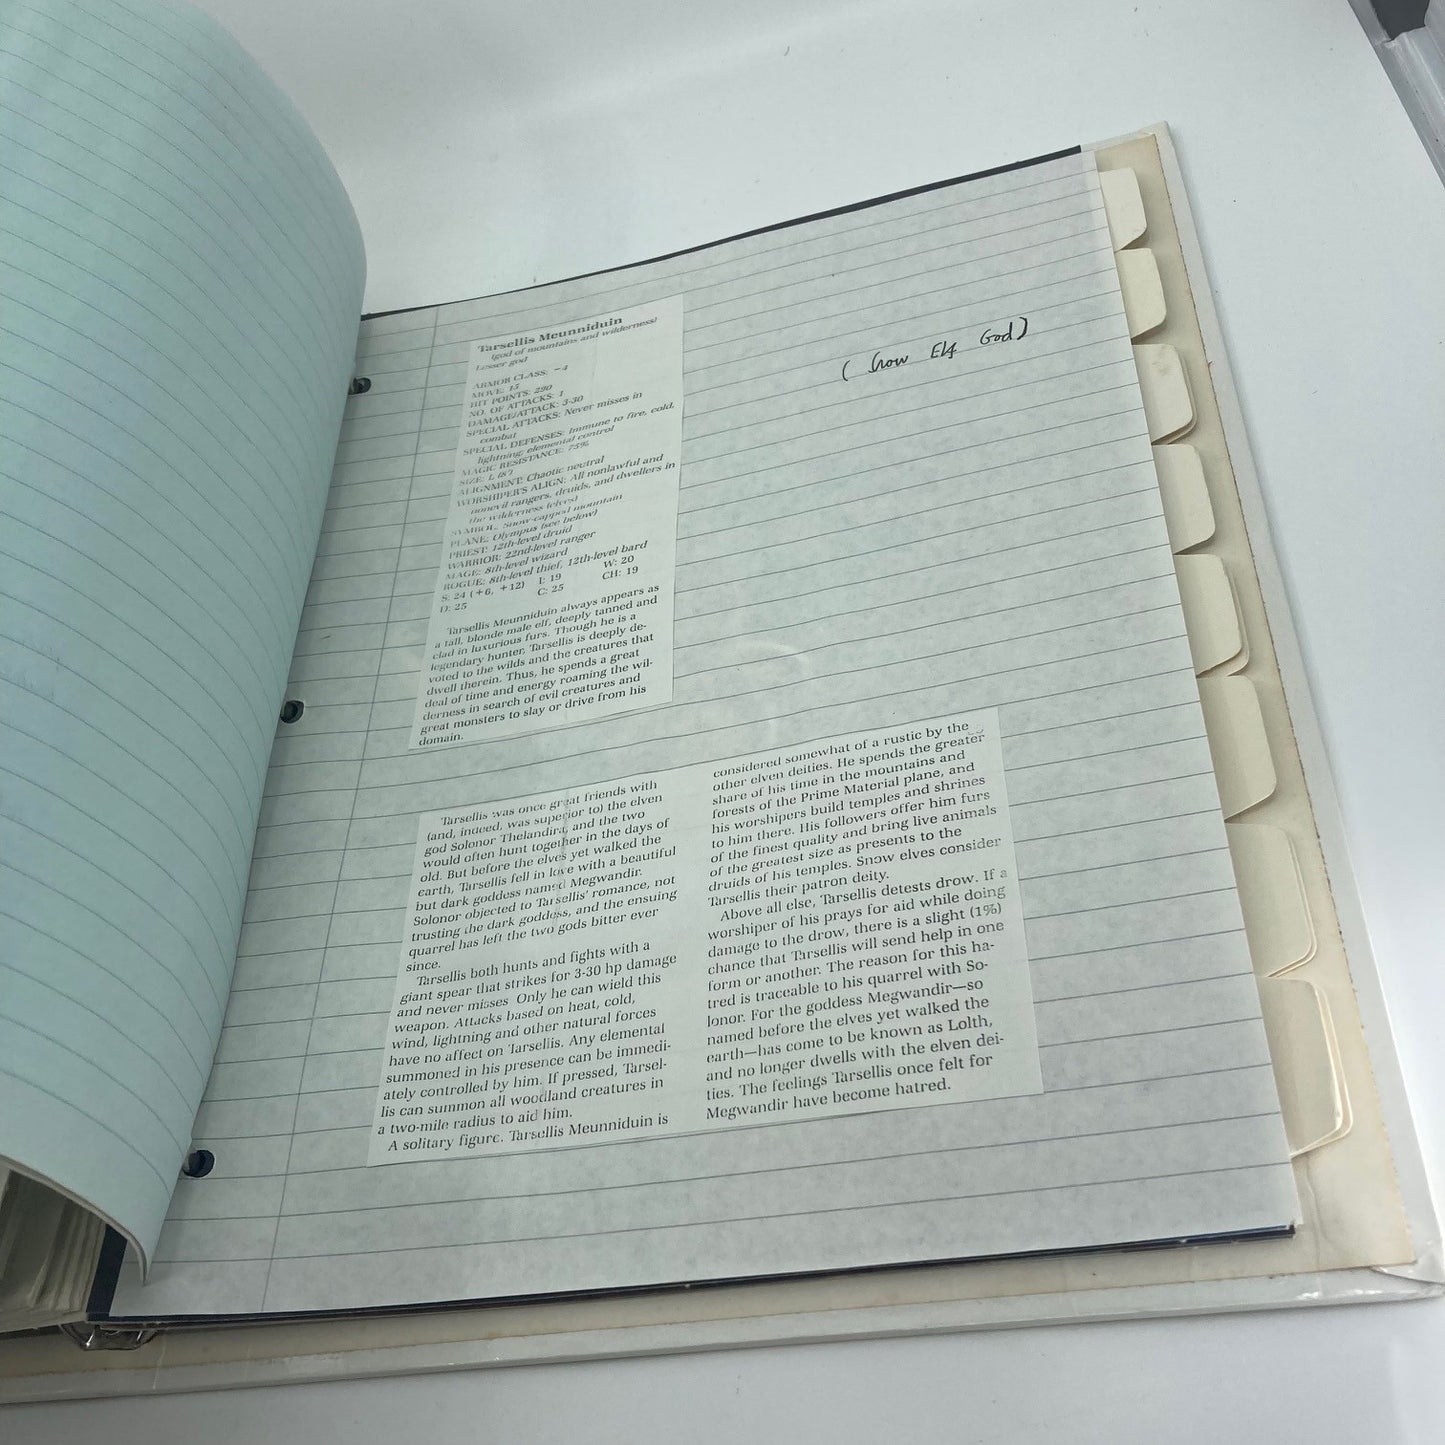 Tarsellis Meunniduin
(god of mountains and wilderness)
Lesser god
ARMOR CLASS: -4
MOVE: 15
HIT POINTS: 290
NO. OF ATTACKS: 1
DAMAGE/ATTACK: 3-30
SPECIAL ATTACKS: Never misses in
combat
SPECIAL DEFENSES: Immune to fire, cold,
lightning; elemental control
MAGIC RESISTANCE: 75%
SIZE: L (8')
ALIGNMENT: Chaotic neutral
WORSHIPER'S ALIGN: All nonlawful and
nonevil rangers, druids, and dwellers in
the wilderness (elves)
SYMBOL: Snow-capped mountain
PLANE: Olympus (see below)
PRIEST: 12th-level druid
WARRIOR: 22nd-level ranger
MAGE: 8th-level wizard
ROGUE: 8th-level thief, 12th-level bard
S: 24 (+6, +12) I: 19 W: 20
D: 25 C: 25 CH: 19
Tarsellis Meunniduin always appears as
a tall, blonde male elf, deeply tanned and
clad in luxurious furs. Though he is a
legendary hunter, Tarsellis is deeply de-
voted to the wilds and the creatures that
dwell therein. Thus, he spends a great
deal of time and energy roaming the wil-
derness in search of evil creatures and
great monsters to slay or drive from his
domain.
(Snow Elf God)
Tarsellis was once great friends with
(and, indeed, was superior to) the elven
god Solonor Thelandira, and the two
would often hunt together in the days of
old. But before the elves yet walked the
earth, Tarsellis fell in love with a beautiful
but dark goddess named Megwandir.
Solonor objected to Tarsellis' romance, not
trusting the dark goddess, and the ensuing
quarrel has left the two gods bitter ever
since.
Tarsellis both hunts and fights with a
giant spear that strikes for 3-30 hp damage
and never misses. Only he can wield this
weapon. Attacks based on heat, cold,
wind, lightning and other natural forces
have no affect on Tarsellis. Any elemental
summoned in his presence can be immedi-
ately controlled by him. If pressed, Tarsel-
lis can summon all woodland creatures in
a two-mile radius to aid him.
A solitary figure, Tarsellis Meunniduin is
considered somewhat of a rustic by the
other elven deities. He spends the greater
share of his time in the mountains and
forests of the Prime Material plane, and
his worshipers build temples and shrines
to him there. His followers offer him furs
of the finest quality and bring live animals
of the greatest size as presents to the
druids of his temples. Snow elves consider
Tarsellis their patron deity.
Above all else, Tarsellis detests drow. If a
worshiper of his prays for aid while doing
damage to the drow, there is a slight (1%)
chance that Tarsellis will send help in one
form or another. The reason for this ha-
tred is traceable to his quarrel with So-
lonor. For the goddess Megwandir—so
named before the elves yet walked the
earth—has come to be known as Lolth,
and no longer dwells with the elven dei-
ties. The feelings Tarsellis once felt for
Megwandir have become hatred.